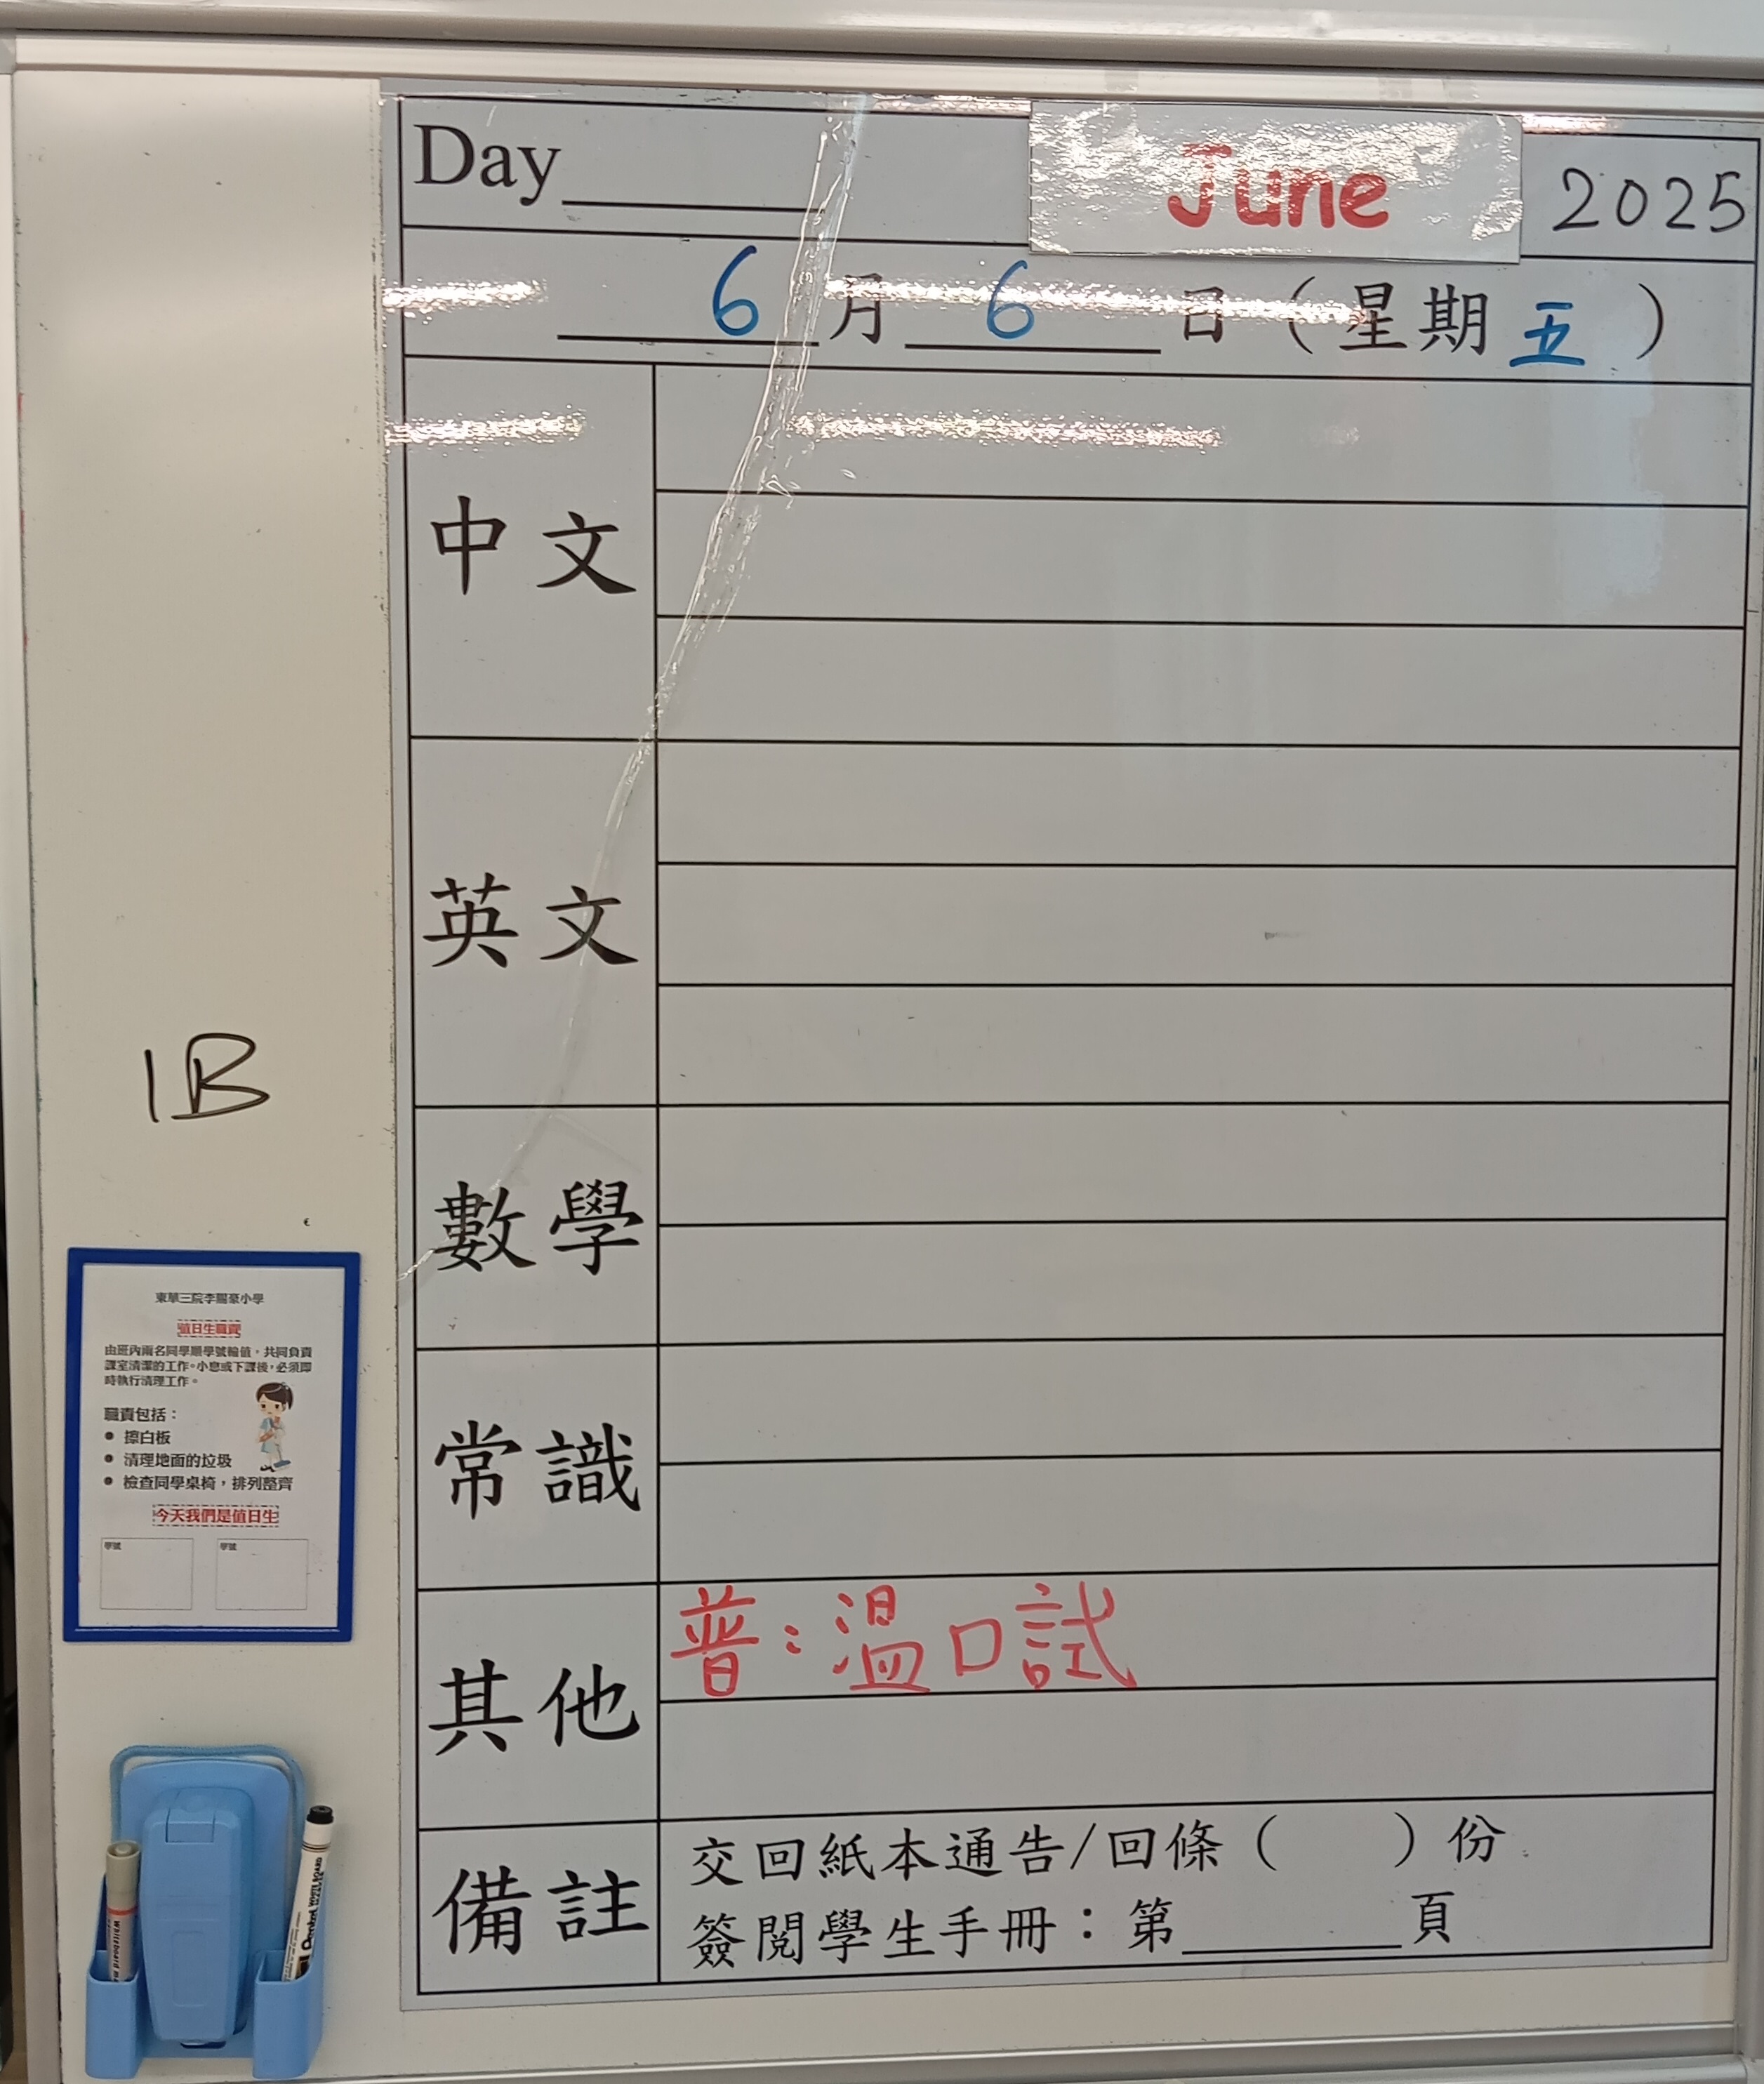 Day
June 2025
6 月 6 日 ( 星期 五 )
中文
英文
數學
常識
其他
普：溫口試
備註
交回紙本通告/回條 ( ) 份
簽閱學生手冊：第 頁
1B
值日生職責
由班內兩名同學順學號輪值，共同負責
課室清潔的工作。小息或下課後，必須即
時執行清理工作。
職責包括：
• 擦白板
• 清理地面的垃圾
• 檢查同學桌椅，排列整齊
今天我們是值日生
學號 學號
Pentel